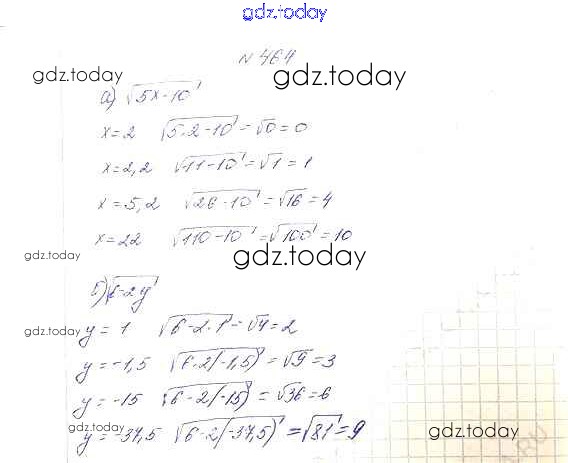 gdz.today
N 464
gdz.today gdz.today
а) √5x-10
x=2 √5·2-10=√0=0
x=2,2 √11-10=√1=1
x=5,2 √26-10=√16=4
x=22 √110-10=√100=10
gdz.today gdz.today
б) √6-2y
gdz.today y=1 √6-2·1=√4=2
y=-1,5 √6-2(-1,5)=√9=3
y=-15 √6-2(-15)=√36=6
gdz.today y=-37,5 √6-2(-37,5)=√81=9 gdz.today